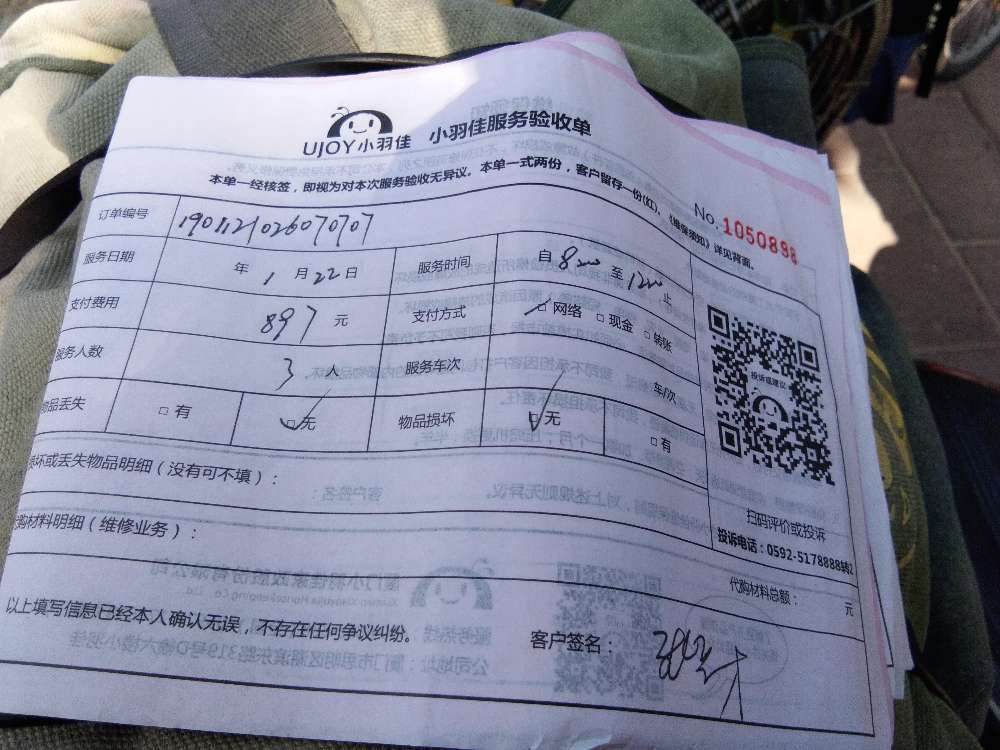 UJOY小羽佳 小羽佳服务验收单
本单一经核签，即视为对本次服务验收无异议。本单一式两份，客户留存一份(红)，《维保须知》详见背面。
No. 1050898
订单编号 1901121026070707
服务日期 年 1 月 22 日 服务时间 自 8:00 至 12:00 止
支付费用 897 元 支付方式 □ 网络 □ 现金 □ 转账
服务人数 3 人 服务车次 车/次
物品丢失 □ 有 □ 无 物品损坏 □ 无 □ 有
投诉或建议
损坏或丢失物品明细（没有可不填）：
扫码评价或投诉
投诉电话：0592-5178888转2
代购材料明细（维修业务）：
代购材料总额： 元
以上填写信息已经本人确认无误，不存在任何争议纠纷。
客户签名：